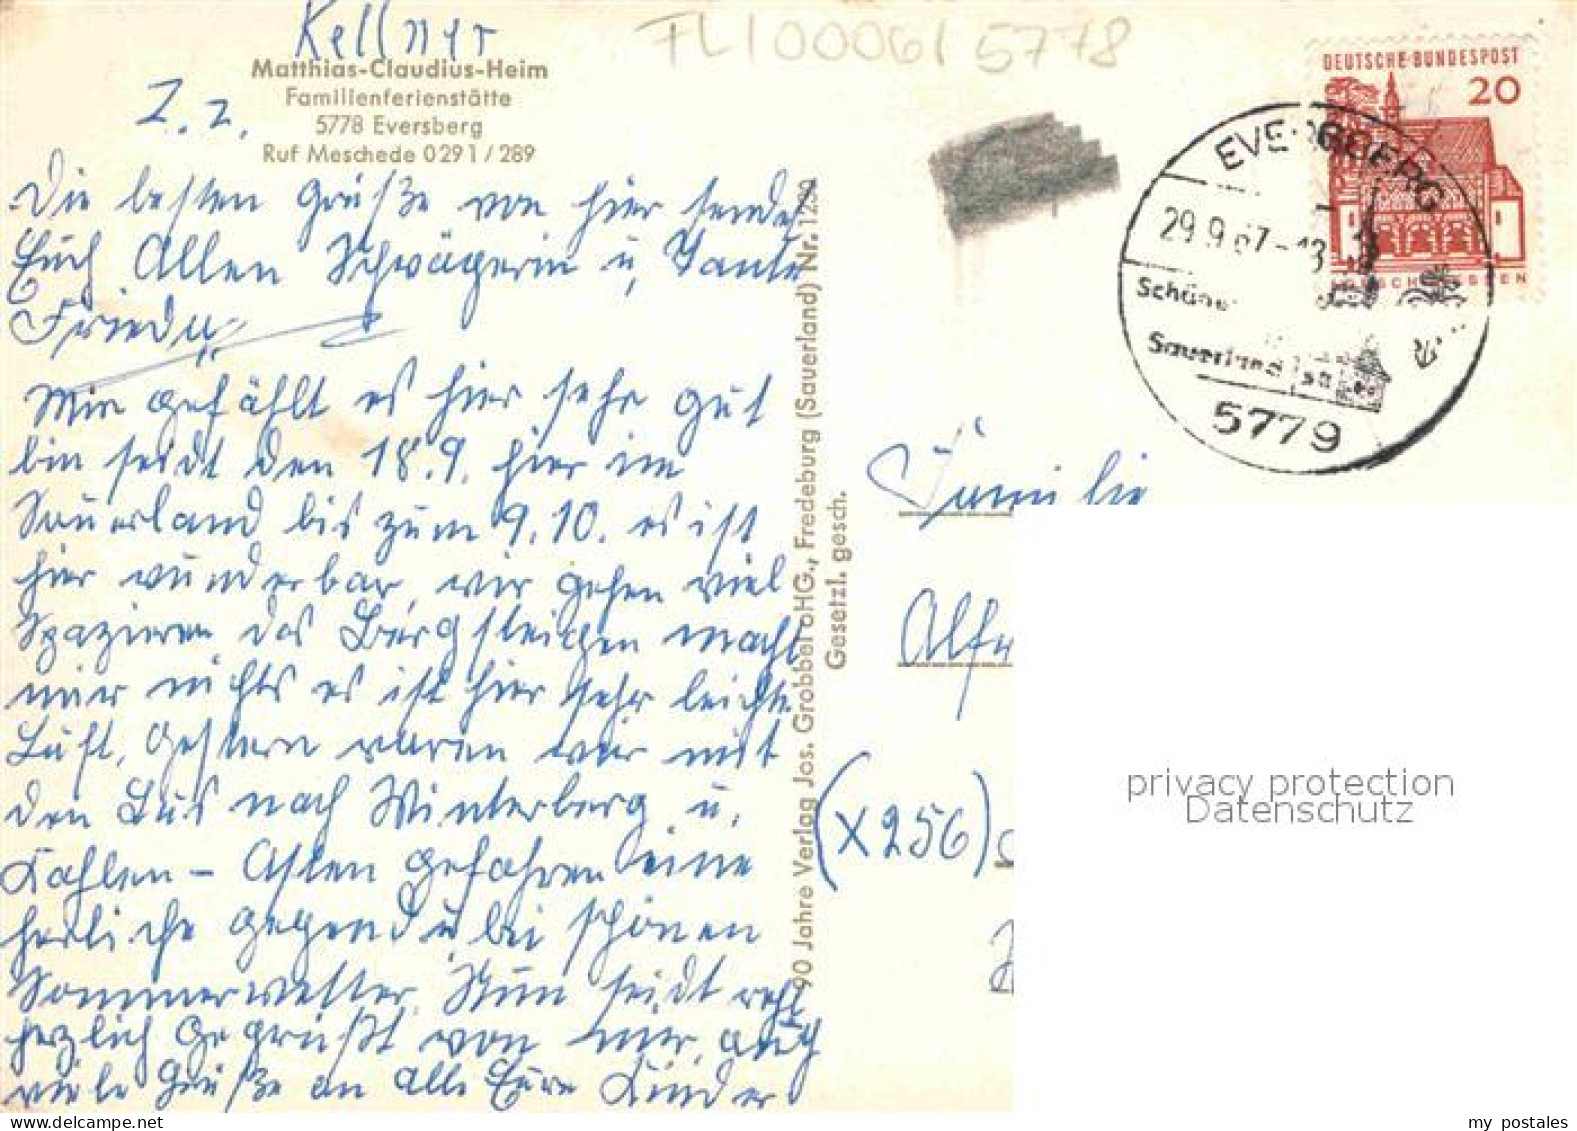 Kellner
Matthias-Claudius-Heim
Familienferienstätte
5778 Eversberg
Ruf Meschede 0291/289
Z. Z.
Die besten Grüße von hier sendet
Euch Allen Schwägerin u. Tante
Frieda
Mir gefählt es hier sehr gut
bin seidt den 18.9. hier im
Sauerland bis zum 9.10. es ist
hier wunderbar, wir gehen viel
Spazieren das Bergsteigen macht
mir nichts es ist hier sehr leichte
Luft. Gestern waren wir mit
den Bus nach Winterberg u.
Kahlen - Asten gefahren eine
herliche gegend u. bei schönen
Sommerwetter. Nun seidt recht
herzlich gegrüßt von mir, auch
viele Grüße an alle Eure Kinder
90 Jahre Verlag Jos. Grobbel oHG., Fredeburg (Sauerland) Nr. 123
Gesetzl. gesch.
TL/0006/5778
DEUTSCHE BUNDESPOST
20
EVERSBERG
29.9.67-13
Sauerland
5779
Familie
Alfr
(X256)
privacy protection
Datenschutz
my postales